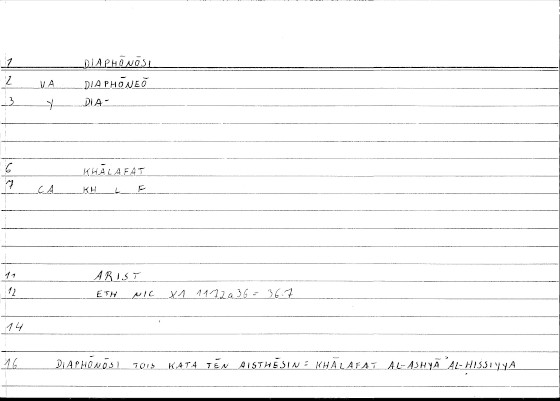 1 DIAPHŌNŌSI
2 VA DIAPHŌNEŌ
3 Y DIA-
6 KHĀLAFAT
7 CA KH L F
11 ARIST
12 ETH NIC X1 1172a36 = 36.7
14
16 DIAPHŌNŌSI TOIS KATA TĒN AISTHĒSIN = KHĀLAFAT AL-ASHYĀ' AL-ḤISSIYYA